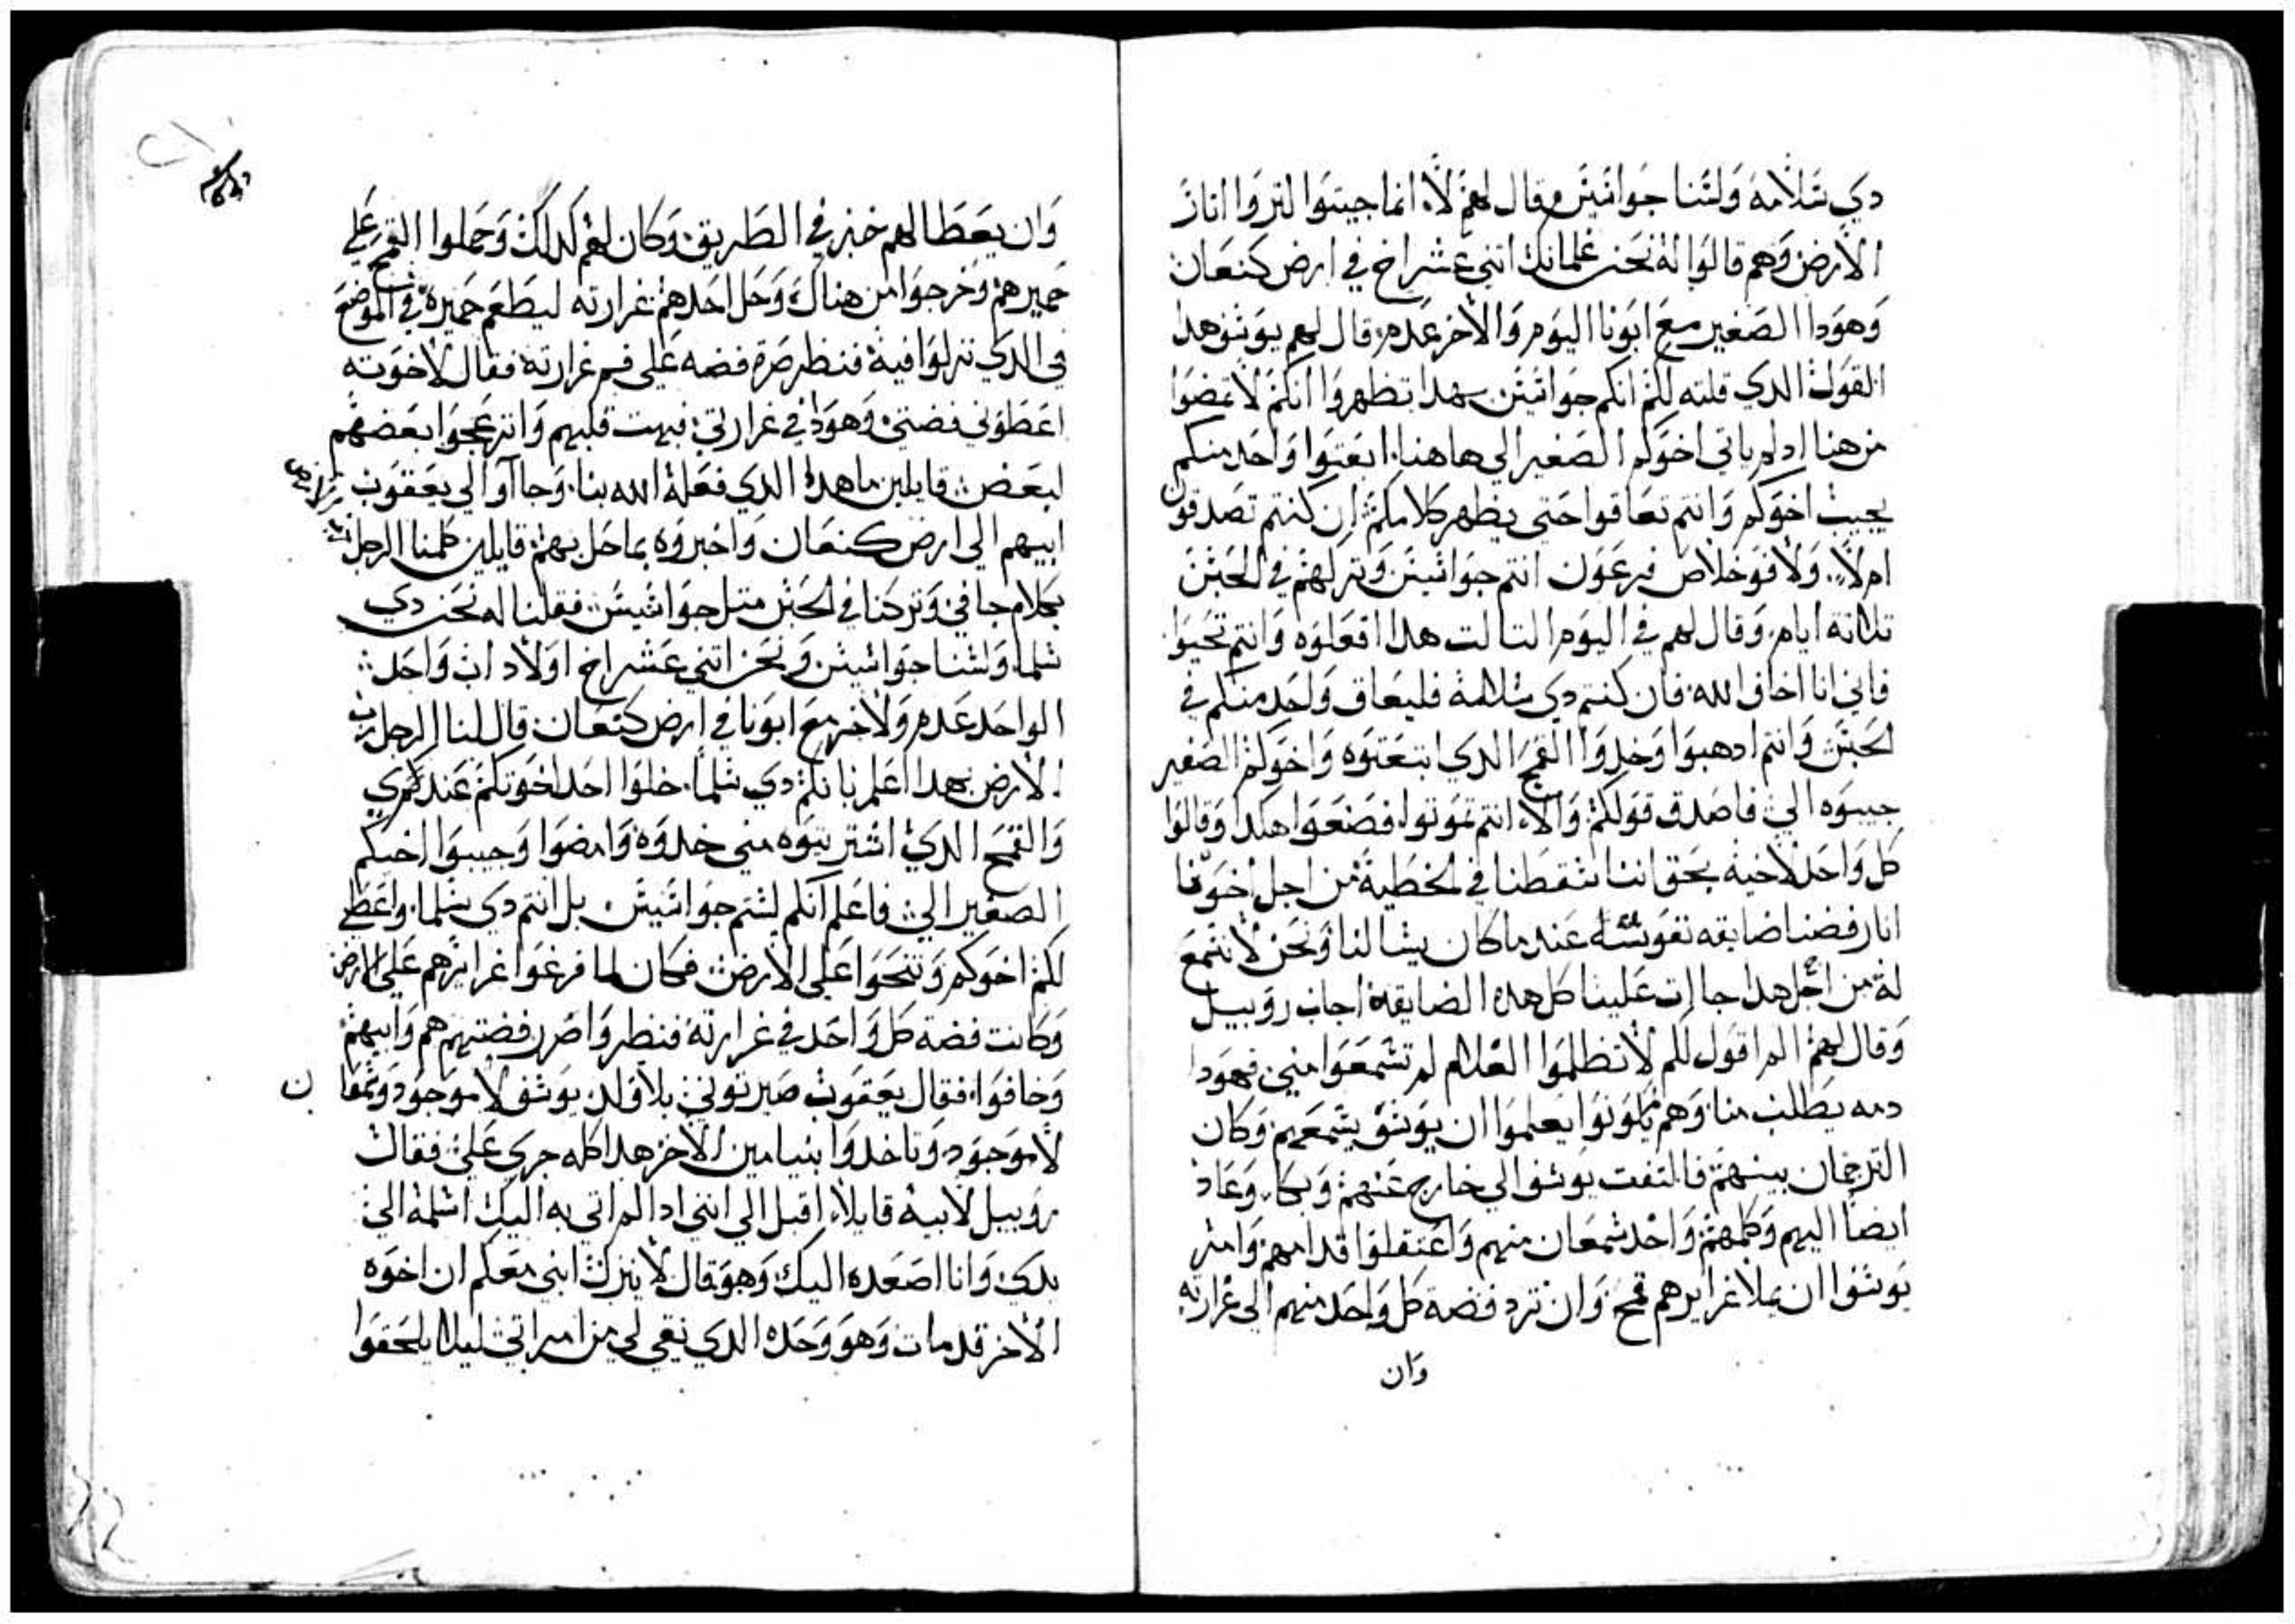 دي سلامه ولسنا جواسيس وقال لهم لا انما جيتوا لتروا اثار
الارض وهم قالوا له نحن غلمانك اتني عشر اخ في ارض كنعان
وهودا الصغير مع ابونا اليوم والاخر عدم قال لهم يوسف هدا
القول الدي قلته لكم انكم جواسيس بهدا تظهروا انكم لا تمضوا
من هنا اد لم ياتي اخوكم الصغير الي هاهنا ابعتوا واحد منكم
يجيب اخوكم وانتم تعاقوا حتى يظهر كلامكم ان كنتم تصدقون
ام لا ولا فوخلاص فرعون انتم جواسيس وتركهم في الحبس
تلاتة ايام وقال لهم في اليوم التالت هدا افعلوه وانتم تحيوا
فاني انا اخاف الله فان كنتم دي سلامة فليعاق واحد منكم في
الحبس وانتم ادهبوا وخدوا القمح الدي ابتعتوه واخوكم الصغير
جيبوه الي فاصدق قولكم والا انتم تموتوا فصنعوا هكدا وقالوا
كل واحد لاخيه بحق اننا سقطنا في الخطية من اجل اخونا
انا رفضنا ضايقه نفسه عند ما كان يسالنا ونحن لا نسمع
له من اجل هدا جاات علينا كل هده الضايقة اجاب روبيل
وقال لهم الم اقول لكم لا تظلموا الغلام لم تسمعوا مني فهودا
دمه يطلب منا وهم يكونوا يعلموا ان يوسف يسمعهم وكان
الترجمان بينهم فالتفت يوسف الي خارج عنهم وبكا وعاد
ايضا اليهم وكلمهم واخد شمعان منهم واعتقلوا قدامهم وامر
يوسف ان يملا غرايرهم قمح وان ترد فضة كل واحد منهم الى غرارته
وان
وان يعطا لهم خبز في الطريق وكان لهم كدلك وحملوا القمح علي
حميرهم وخرجوا من هناك وحل احدهم غرارته ليطعم حميره في الموضع
الدي نزلوا فيه فنظر صرة فضه علي فم غرارته فقال لاخوته
اعطوني فضتي وهودا في غرارتي فبهت قلبهم وانزعجوا بعضهم
لبعض قايلين ما هدا الدي فعله الله بنا وجااوا الي يعقوب
ابيهم الي ارض كنعان واخبروه بما حل بهم قايلين كلمنا الرجل رب الارض
بكلام جافي وتركنا في الحبس متل جواسيس فقلنا له نحن دي
سلما ولسنا جواسيس ونحن اتني عشر اخ اولاد اب واحد
الواحد عدم والاخر مع ابونا في ارض كنعان قال لنا الرجل رب
الارض بهدا اعلم بانكم دي سلما خلوا احد اخوتكم عندي
والقمح الدي اشتريتوه مني خدوه وامضوا وجيبوا اخيكم
الصغير الي فاعلم انكم لستم جواسيس بل انتم دي سلما واعطي
لكم اخوكم وتتجوا علي الارض فكان لما فرغوا غرايرهم علي الارض
وكانت فضة كل واحد في غرارته فنظروا صرر فضتهم هم وابيهم
وخافوا فقال يعقوب صيرتوني بلا ولد يوسف لا موجود وشمعان
لا موجود وتاخدوا بنيامين الاخر هدا كله جري علي فقال
روبيل لابيه قايلا اقبل الي ابني ادا لم اتي به اليك اسلمه الي
يدي وانا اصعده اليك وهو قال لا ينزل ابني معكم ان اخوه
الاخر قد مات وهو وحده الدي بقي لي من امراتي ليلا يلحقوا